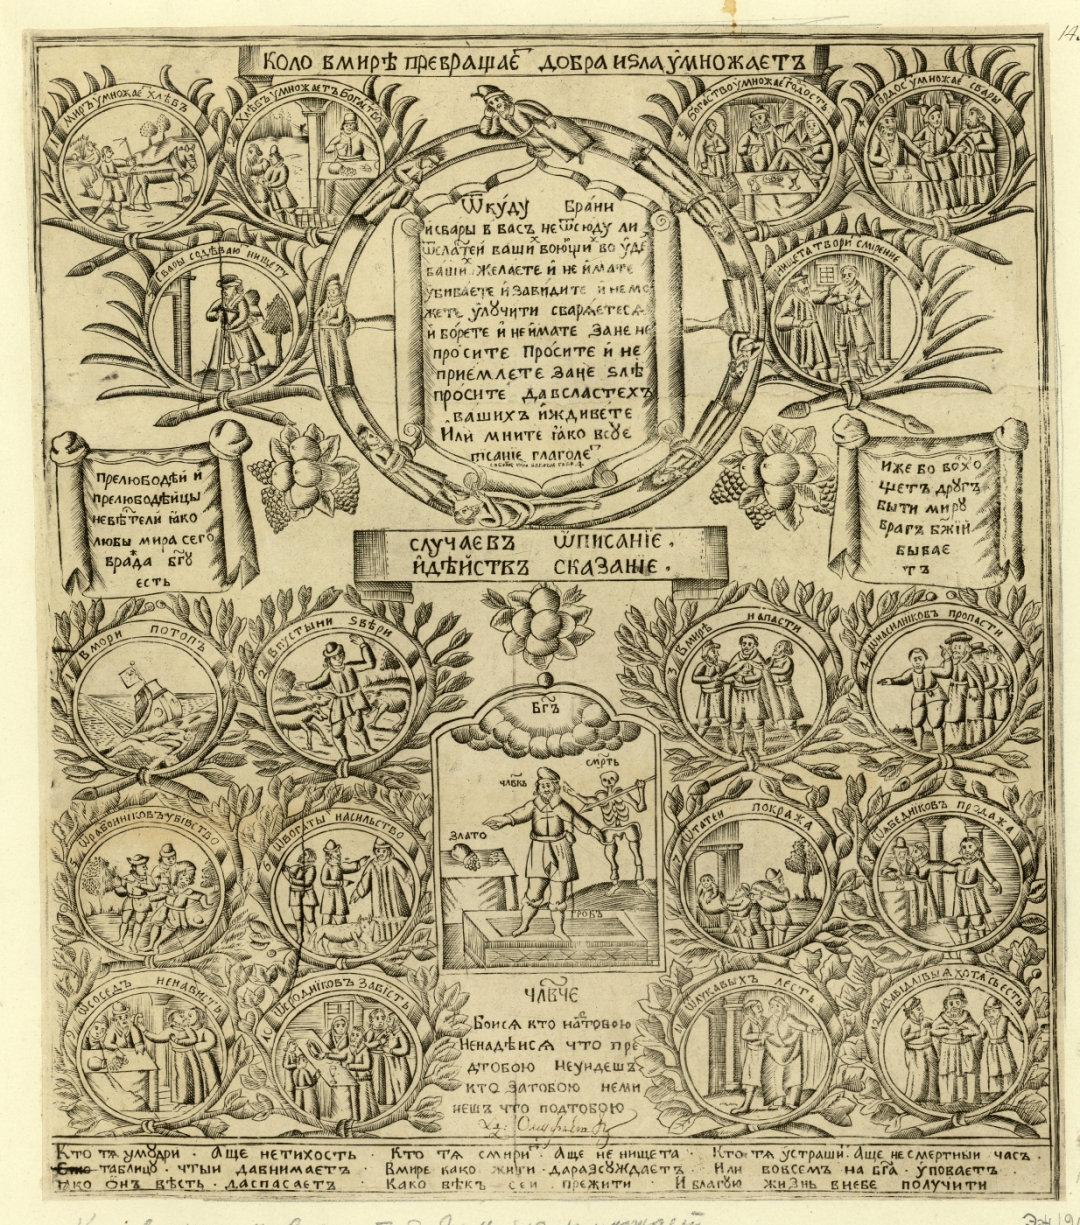 КОЛО ВМИРѢ ПРЕВРАЩАЕ ДОБРА ИЅЛА УМНОЖАЕТЪ
МИРЪ УМНОЖАЕ ХЛѢБЪ
ХЛѢБЪ УМНОЖАЕТЪ БОГАСТВО
БОГАСТВО УМНОЖАЕ ГОРДОСТЬ
ГОРДОС УМНОЖАЕ СВАРЫ
СВАРЫ СОДѢВАЮ НИЩЕТУ
НИЩЕТА ТВОРИ СМИРЕНИЕ
ѾКУДУ БРАНИ
И СВАРЫ В ВАСЪ НЕ ѾСЮДУ ЛИ
ѾСЛАТЕИ ВАШИХ ВОЮЩИХ ВО УДЕ
ВАШИХ ЖЕЛАЕТЕ И НЕ ИМАТЕ
УБИВАЕТЕ И ЗАВИДИТЕ И НЕ МО
ЖЕТЕ УЛУЧИТИ СВАРѦЕТЕСѦ
И БОРЕТЕ И НЕ ИМАТЕ ЗАНЕ НЕ
ПРОСИТЕ ПРОСИТЕ И НЕ
ПРИЕМЛЕТЕ ЗАНЕ ЅЛѢ
ПРОСИТЕ ДА ВСЛАСТЕХЪ
ВАШИХЪ ИЖДИВЕТЕ
ИЛИ МНИТЕ ꙖКО ВСУЕ
ПИСАНІЕ ГЛАГОЛЕТ
ПРЕЛЮБОДѢИ И
ПРЕЛЮБОДѢИЦЫ
НЕВѢСТЕЛИ ꙖКО
ЛЮБЫ МИРА СЕГО
ВРАЖДА БГУ
ЕСТЬ
ИЖЕ БО ВОСХО
ЩЕТЪ ДРУГЪ
БЫТИ МИРУ
ВРАГЪ БЖІЙ
БЫВАЕ
ТЪ
СЛУЧАЕВЪ ѾПИСАНІЕ.
И ДѢИСТВЪ СКАЗАНІЕ.
1 В МОРИ ПОТОПЪ
2 В ПУСТЫНИ ЅВѢРИ
3 В МИРѢ НАПАСТИ
4 Ѿ НАСИЛНИКОВЪ ПРОПАСТИ
5 Ѿ РАЗБОИНИКОВЪ УБИВСТВО
6 Ѿ БОГАТЫ НАСИЛЬСТВО
7 Ѿ ТАТЕИ ПОКРАЖА
ѾАБЕДНІКОВЪ ПРОДАЖА
БГЪ
СМРТЬ
ЧЛВКЪ
ЗЛАТО
ГРОБЪ
9 Ѿ СОСЕДЪ НЕНАВИСТЬ
Ѿ СРОДНІКОВЪ ЗАВІСТЬ
11 Ѿ ЛУКАВЫХЪ ЛЕСТЬ
12
ЧЛВЧЕ
БОИСѦ КТО НАТОБОЮ
НЕНАДѢИСѦ ЧТО ПРЕ
ДТОБОЮ НЕУИДЕШЪ
КТО ЗАТОБОЮ НЕМИ
НЕШЪ ЧТО ПОДТОБОЮ
КТО ТѦ УМУДРИ · АЩЕ НЕ ТИХОСТЬ · КТО ТѦ СМИРИТ АЩЕ НЕ НИЩЕТА · КТО ТѦ УСТРАШИ · АЩЕ НЕ СМЕРТНЫИ ЧАСЪ ·
ТАБЛИЦУ · ЧТЫИ ДАВНИМАЕТЪ · ВМИРЕ КАКО ЖИТИ · ДАРАЗСУЖДАЕТЪ · ИЛИ ВОВСЕМЪ НА БГА · УПОВАЕТЪ ·
ꙖКО ОНЪ ВѢСТЬ · ДАСПАСАЕТЪ · КАКО ВѢКЪ СЕИ ПРЕЖИТИ · И БЛАГУЮ ЖИЗНЬ В НЕБЕ ПОЛУЧИТИ